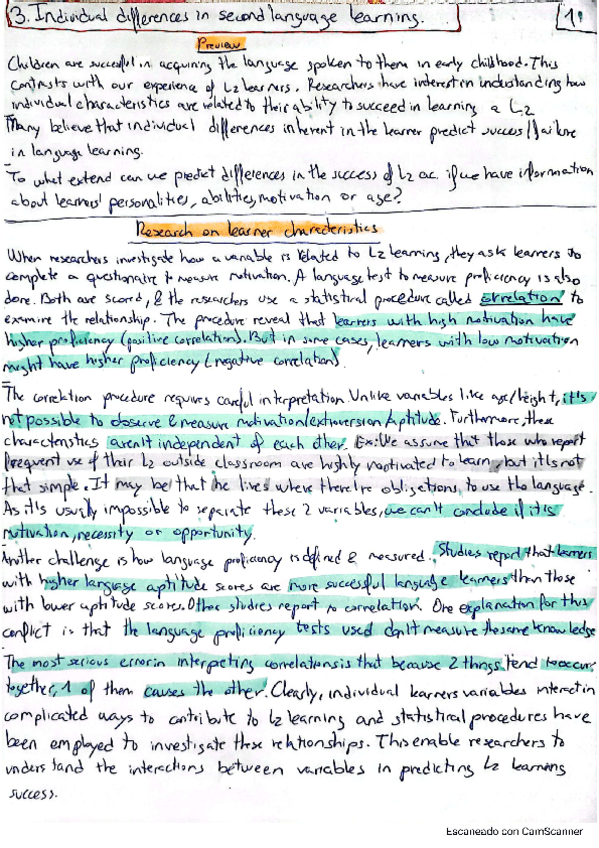 3. Individual differences in second language learning. 1
Preview
Children are succesful in acquiring the language spoken to them in early childhood. This
contrasts with our experience of L2 learners. Researchers have interest in understanding how
individual characteristics are related to their ability to succeed in learning a L2
Many believe that individual differences inherent in the learner predict success/failure
in language learning.
To what extend can we predict differences in the success of L2 ac. if we have information
about learners' personalities, abilities, motivation or age?
Research on learner characteristics
When researchers investigate how a variable is related to L2 learning, they ask learners to
complete a questionaire to measure motivation. A language test to measure proficiency is also
done. Both are scored, & the researchers use a statistical procedure called correlation to
examine the relationship. The procedure reveal that learners with high motivation have
higher proficiency (positive correlation). But in some cases, learners with low motivation
might have higher proficiency (negative correlation).
The correlation procedure requires careful interpretation. Unlike variables like age/height, it's
not possible to observe & measure motivation/extroversion/aptitude. Furthermore, these
characteristics aren't independent of each other. Ex: We assume that those who report
frequent use of their L2 outside classroom are highly motivated to learn, but it's not
that simple. It may be that he lives where there're obligations to use the language.
As it's usually impossible to separate these 2 variables, we can't conclude if it is
motivation, necessity or opportunity.
Another challenge is how language proficiency is defined & measured. Studies report that learners
with higher language aptitude scores are more successful language learners than those
with lower aptitude scores. Other studies report no correlation. One explanation for this
conflict is that the language proficiency tests used don't measure the same knowledge
The most serious error in interpreting correlations is that because 2 things tend to occur
together, 1 of them causes the other. Clearly, individual learners variables interact in
complicated ways to contribute to L2 learning and statistical procedures have
been employed to investigate these relationships. This enable researchers to
understand the interactions between variables in predicting L2 learning
success.
Escaneado con CamScanner